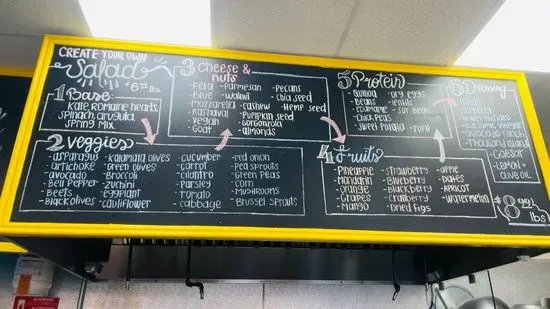 CREATE YOUR OWN
Salad
1 Base
Kale, Romaine hearts,
spinach, arugula,
spring mix
2 Veggies
• asparagus
• artichoke
• avocado
• Bell Pepper
• Beets
• Black olives
• Kalamata olives
• Green olives
• Broccoli
• zuchini
• eggplant
• cauliflower
• cucumber
• carrot
• cilantro
• Parsley
• Tomato
• cabbage
• red onion
• Pea sprouts
• Green Peas
• corn
• MUSHROOMS
• Brussel sprouts
3 Cheese &
nuts
• Feta
• Blue
• Mozzarella
• Vegan
• Goat
• Parmesan
• walnut
• cashew
• Pumpkin seed
• Gorgonzola
• almonds
• Pecans
• Chia seed
• Hemp seed
4 Fruits
• Pineapple
• Mandarin
• orange
• Grapes
• Mango
• strawberry
• Blueberry
• Blackberry
• Cranberry
• Dried figs
• apple
• Dates
• APRICOT
• Watermelon
5 Protein
• Quinoa
• Beans
• Edamame
• Chick peas
• sweet potato
• org. eggs
• Lentils
• soy bean
• TOFU
6 Dressing
avocado ranch
Thousand island
caesar
Lemon
olive oil
$8.99/
lbs